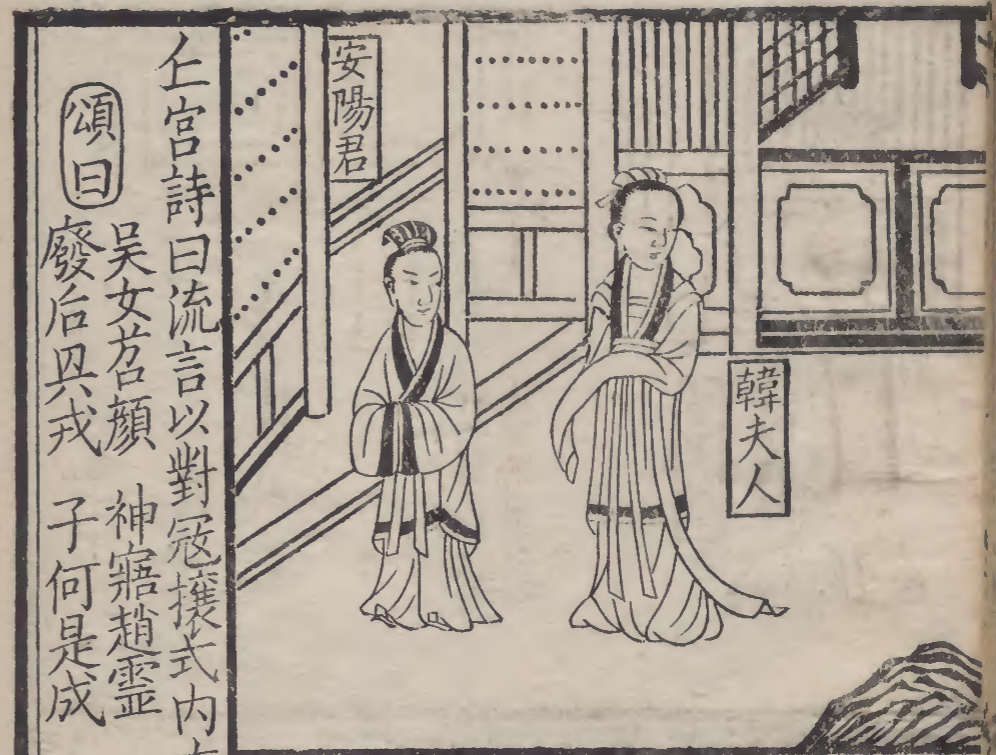 韓夫人
安陽君
亾宮詩曰流言以對冦攘式内
頌曰
吳女苕顏　神寤趙靈
廢后興戎　子何是成